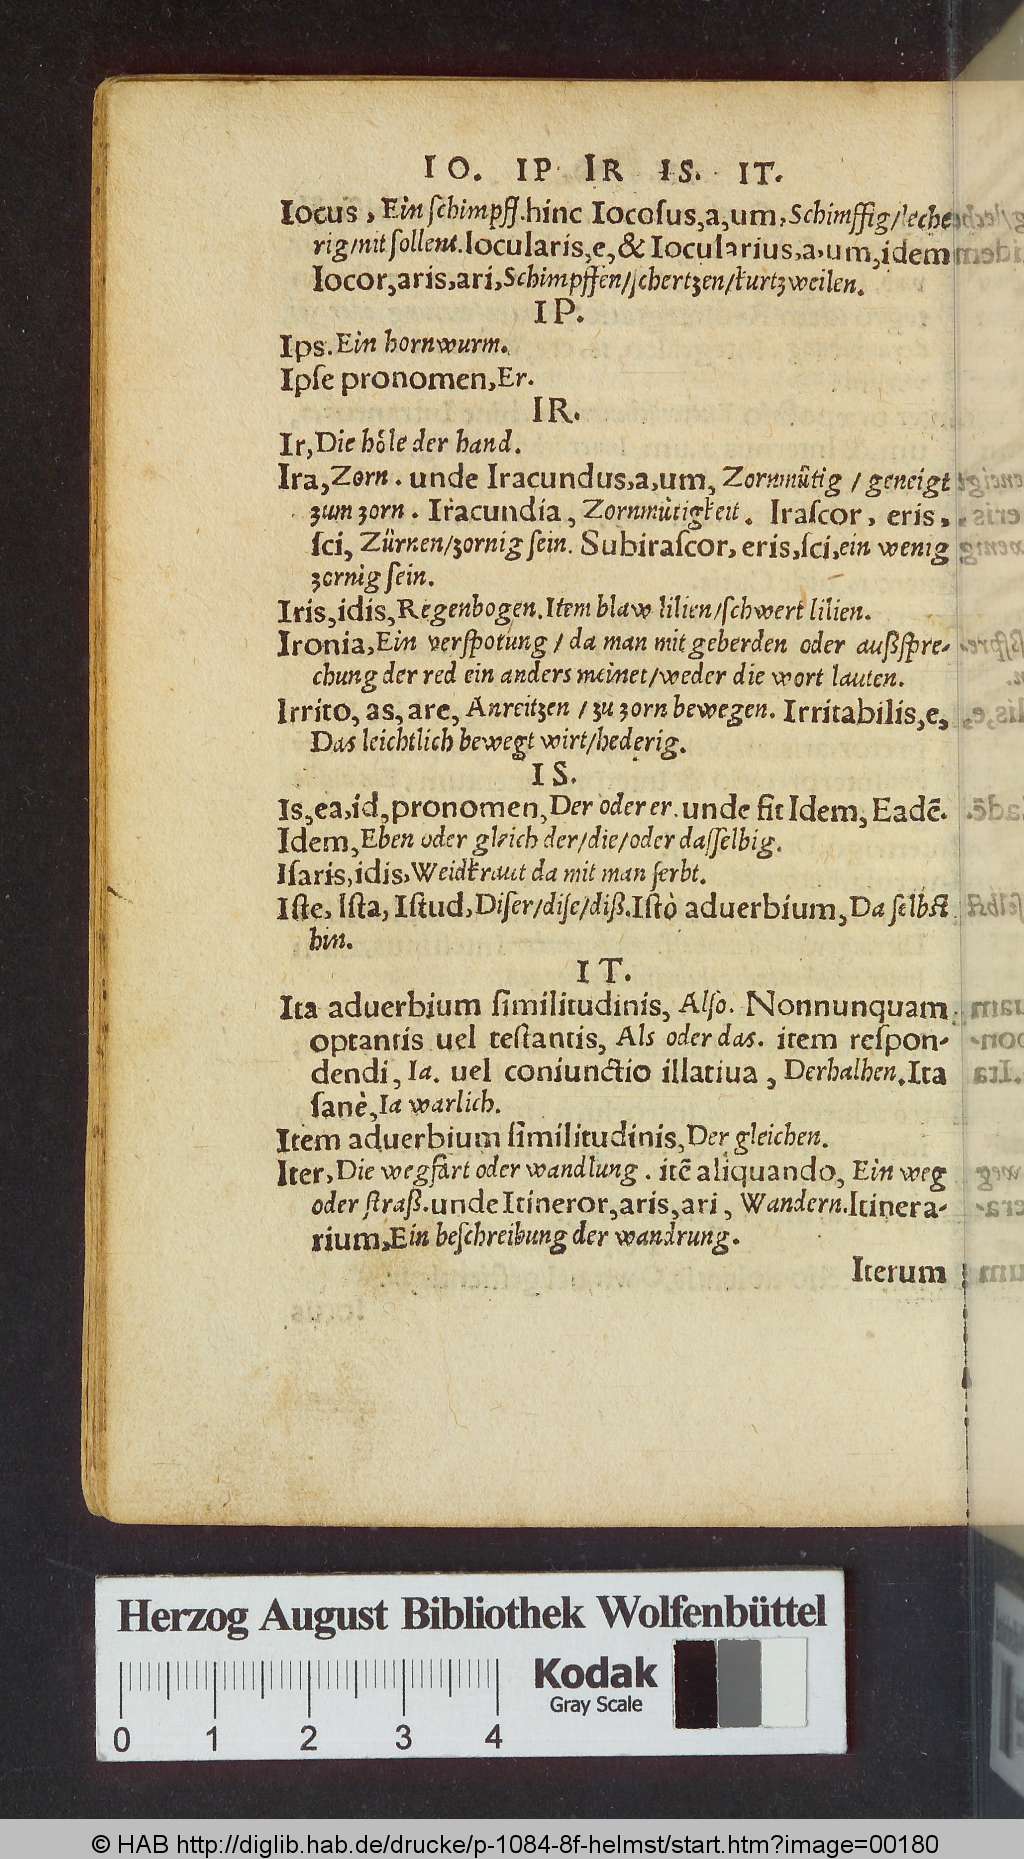 IO. IP IR IS. IT.
Iocus, Ein ſchimpff. hinc Iocoſus, a, um, Schimffig/leche
rig/mit ſollem. Iocularis, e, & Iocularius, a, um, idem
Iocor, aris, ari, Schimpffen/ſchertzen/kurtzweilen.
IP.
Ips. Ein hornwurm.
Ipſe pronomen, Er.
IR.
Ir, Die hôle der hand.
Ira, Zorn. unde Iracundus, a, um, Zornmûtig / geneigt
zum zorn. Iracundia, Zornmùtigkeit. Iraſcor, eris,
ſci, Zürnen/zornig ſein. Subiraſcor, eris, ſci, ein wenig
zornig ſein.
Iris, idis, Regenbogen. Item blaw lilien/ſchwert lilien.
Ironia, Ein verſpotung / da man mit geberden oder außſpre-
chung der red ein anders meinet/weder die wort lauten.
Irrito, as, are, Anreitzen / zu zorn bewegen. Irritabilis, e,
Das leichtlich bewegt wirt/hederig.
IS.
Is, ea, id, pronomen, Der oder er. unde fit Idem, Eadẽ.
Idem, Eben oder gleich der/die/oder daſſelbig.
Iſaris, idis, Weidkraut da mit man ferbt.
Iſte, Iſta, Iſtud, Diſer/diſe/diß. Iſtò aduerbium, Da ſelbſt
hin.
IT.
Ita aduerbium ſimilitudinis, Alſo. Nonnunquam
optantis uel teſtantis, Als oder das. item reſpon-
dendi, Ia. uel coniunctio illatiua, Derhalben. Ita
ſanè, Ia warlich.
Item aduerbium ſimilitudinis, Der gleichen.
Iter, Die wegfart oder wandlung. itẽ aliquando, Ein weg
oder ſtraß. unde Itineror, aris, ari, Wandern. Itinera-
rium, Ein beſchreibung der wandrung.
Iterum
Herzog August Bibliothek Wolfenbüttel
Kodak
Gray Scale
0 1 2 3 4
© HAB http://diglib.hab.de/drucke/p-1084-8f-helmst/start.htm?image=00180